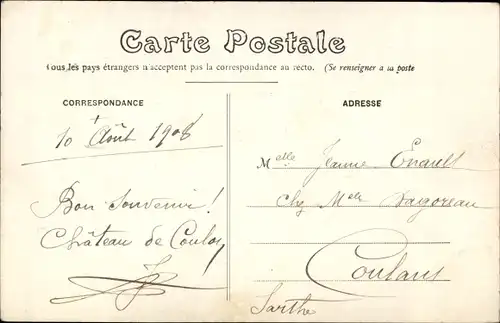 Carte Postale
Tous les pays étrangers n'acceptent pas la correspondance au recto. (Se renseigner à la poste
CORRESPONDANCE
ADRESSE
10 Août 1908
Melle Jeanne Enault
Chez Melle
Bon Souvenir!
Château de
Coulans
Sarthe